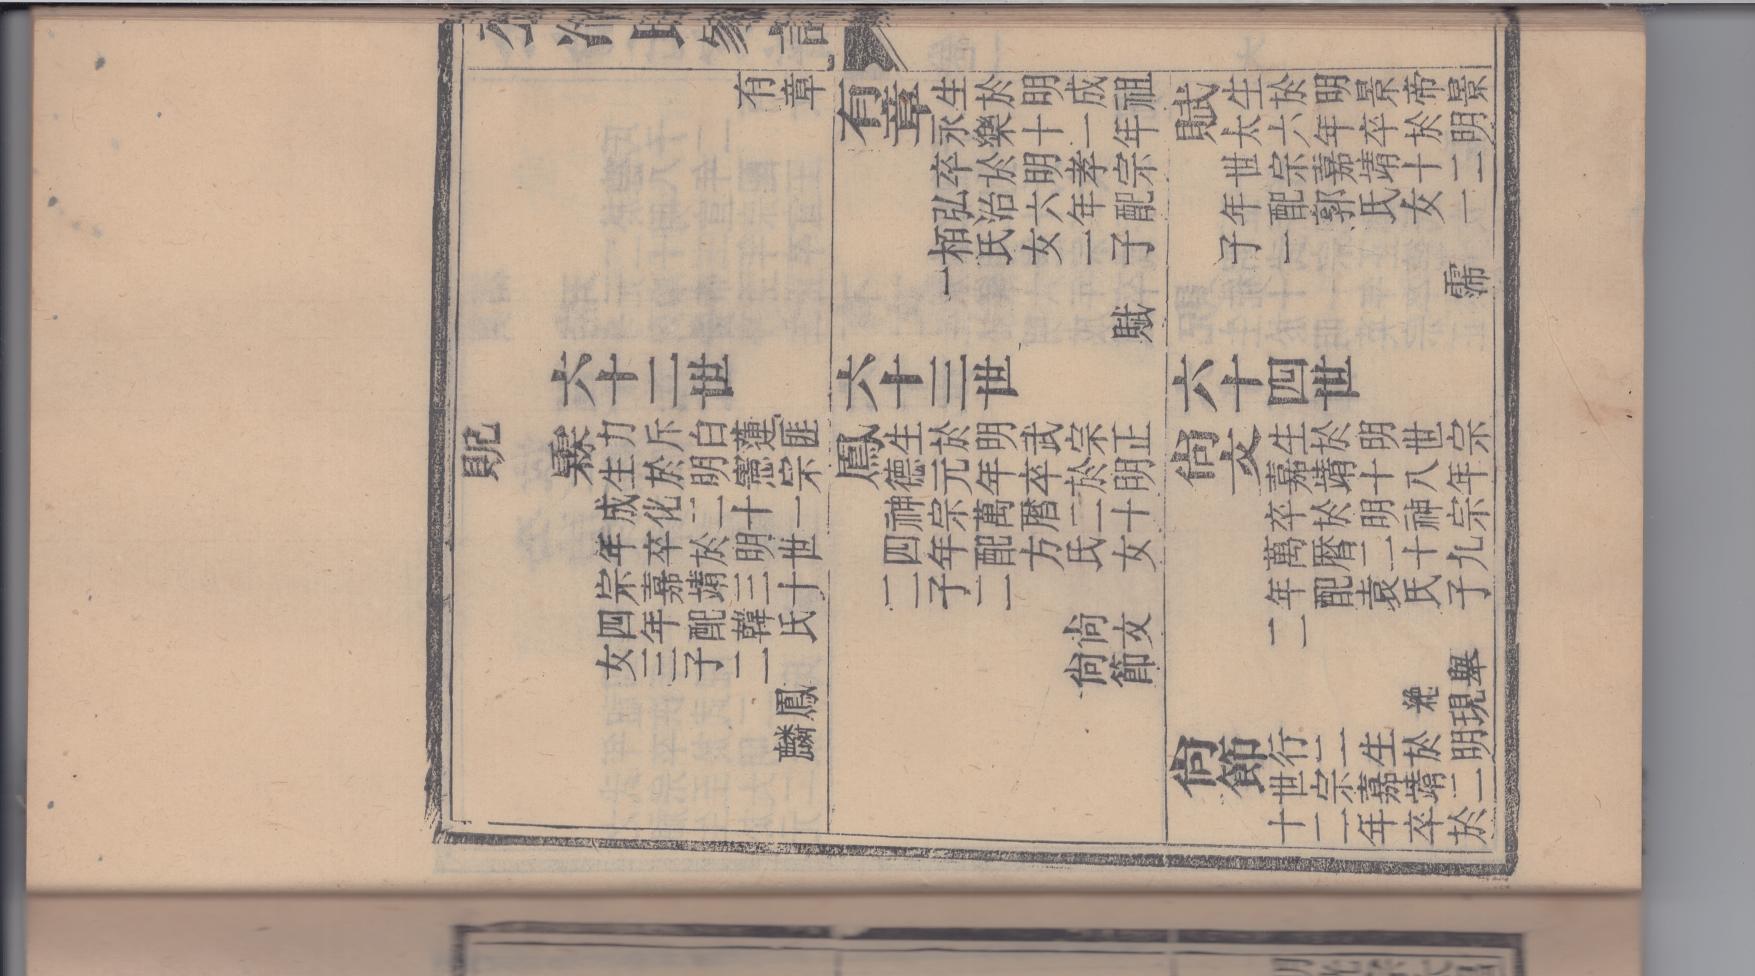 公冶氏家譜
有章
六十二世
霦
力斥白蓮匪
生於明憲宗
成化二十一
年卒於明世
宗嘉靖三十
四年配韓氏
女三子二
鳳
麟
有章
生於明成祖
永樂十一年
卒於明孝宗
弘治六年配
栢氏女二子
一
賦
六十三世
鳳
生於明武宗正
德元年卒於明
神宗萬曆二十
四年配方氏女
二子二
尚文
尚節
賦
生於明景帝景
太六年卒於明
世宗嘉靖十二
年配郭氏女一
子一
六十四世
尚文
生於明世宗
嘉靖十八年
卒於明神宗
萬曆二十九
年配袁氏子
二
舉
現
尚節
行二生於明
世宗嘉靖二
十二年卒於